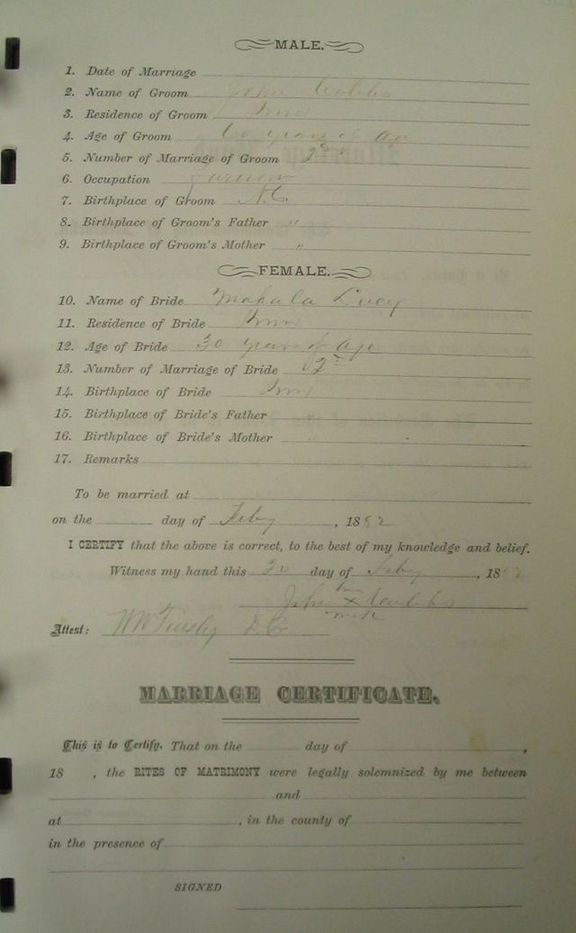 MALE.
1. Date of Marriage
2. Name of Groom John Combs
3. Residence of Groom
4. Age of Groom 60 years of age
5. Number of Marriage of Groom 2
6. Occupation farmer
7. Birthplace of Groom N.C.
8. Birthplace of Groom's Father "
9. Birthplace of Groom's Mother "
FEMALE.
10. Name of Bride Mahala Lucy
11. Residence of Bride
12. Age of Bride 30 years of age
13. Number of Marriage of Bride 2
14. Birthplace of Bride
15. Birthplace of Bride's Father "
16. Birthplace of Bride's Mother "
17. Remarks
To be married at
on the day of Feby , 1882
I CERTIFY that the above is correct, to the best of my knowledge and belief.
Witness my hand this 20 day of Feby , 18
his
John X Combs
mark
Attest: D.C.
MARRIAGE CERTIFICATE.
This is to Certify, That on the day of ,
18 , the RITES OF MATRIMONY were legally solemnized by me between
and
at , in the county of
in the presence of
SIGNED